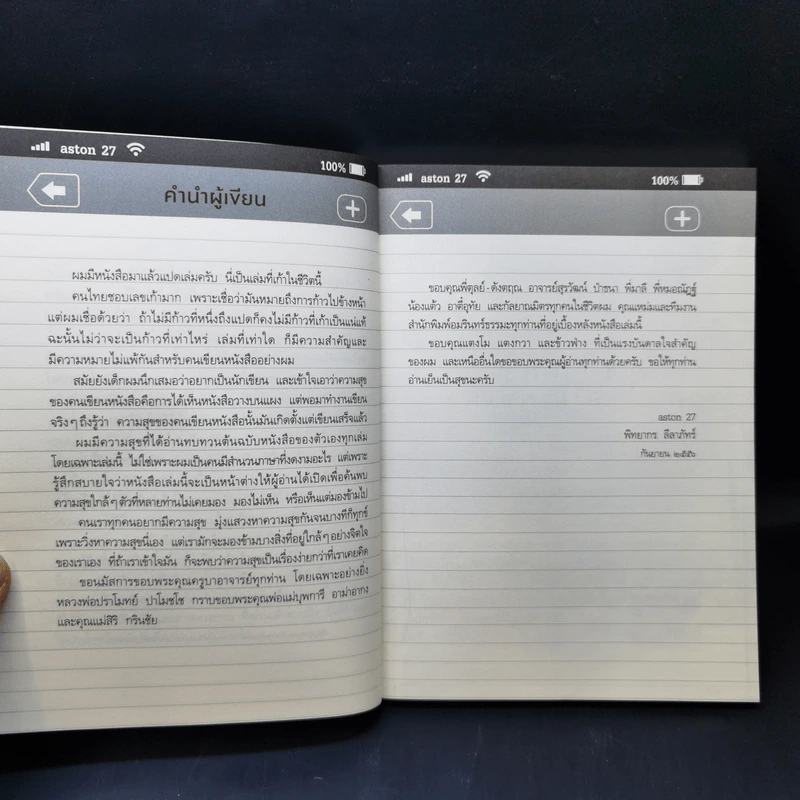 aston 27
100%
คำนำผู้เขียน
ผมมีหนังสือมาแล้วแปดเล่มครับ นี่เป็นเล่มที่เก้าในชีวิตนี้
คนไทยชอบเลขเก้ามาก เพราะเชื่อว่ามันหมายถึงการก้าวไปข้างหน้า
แต่ผมเชื่อด้วยว่า ถ้าไม่มีก้าวที่หนึ่งถึงแปดก็คงไม่มีก้าวที่เก้าเป็นแน่แท้
ฉะนั้นไม่ว่าจะเป็นก้าวที่เท่าไหร่ เล่มที่เท่าใด ก็มีความสำคัญและ
มีความหมายไม่แพ้กันสำหรับคนเขียนหนังสืออย่างผม
สมัยยังเด็กผมนึกเสมอว่าอยากเป็นนักเขียน และเข้าใจเอาว่าความสุข
ของคนเขียนหนังสือคือการได้เห็นหนังสือวางบนแผง แต่พอมาทำงานเขียน
จริงๆ ถึงรู้ว่า ความสุขของคนเขียนหนังสือนั้นมันเกิดตั้งแต่เขียนเสร็จแล้ว
ผมมีความสุขที่ได้อ่านทบทวนต้นฉบับหนังสือของตัวเองทุกเล่ม
โดยเฉพาะเล่มนี้ ไม่ใช่เพราะผมเป็นคนมีสำนวนภาษาที่งดงามอะไร แต่เพราะ
รู้สึกสบายใจว่าหนังสือเล่มนี้จะเป็นหน้าต่างให้ผู้อ่านได้เปิดเพื่อค้นพบ
ความสุขใกล้ๆ ตัวที่หลายท่านไม่เคยมอง มองไม่เห็น หรือเห็นแต่มองข้ามไป
คนเราทุกคนอยากมีความสุข มุ่งแสวงหาความสุขกันจนบางทีก็ทุกข์
เพราะวิ่งหาความสุขนี่เอง แต่เรามักจะมองข้ามบางสิ่งที่อยู่ใกล้ๆ อย่างจิตใจ
ของเราเอง ที่ถ้าเราเข้าใจมัน ก็จะพบว่าความสุขเป็นเรื่องง่ายกว่าที่เราเคยคิด
ขอนมัสการขอบพระคุณครูบาอาจารย์ทุกท่าน โดยเฉพาะอย่างยิ่ง
หลวงพ่อปราโมทย์ ปาโมชฺโช กราบขอบพระคุณพ่อแม่บุพการี อาม่าอากง
และคุณแม่สิริ กรินชัย
aston 27
100%
ขอบคุณพี่ตุลย์-ดังตฤณ อาจารย์สุรวัฒน์ ป้าธนา พี่มาลี พี่หมอณัฏฐ์
น้องแต้ว อาตี๋อุทัย และกัลยาณมิตรทุกคนในชีวิตผม คุณแหม่มและทีมงาน
สำนักพิมพ์อมรินทร์ธรรมะทุกท่านที่อยู่เบื้องหลังหนังสือเล่มนี้
ขอบคุณแตงโม แตงกวา และข้าวฟ่าง ที่เป็นแรงบันดาลใจสำคัญ
ของผม และเหนืออื่นใดขอขอบพระคุณผู้อ่านทุกท่านด้วยครับ ขอให้ทุกท่าน
อ่านเย็นเป็นสุขนะครับ
aston 27
พิทยากร ลีลาภัทร์
กันยายน ๒๕๕๖